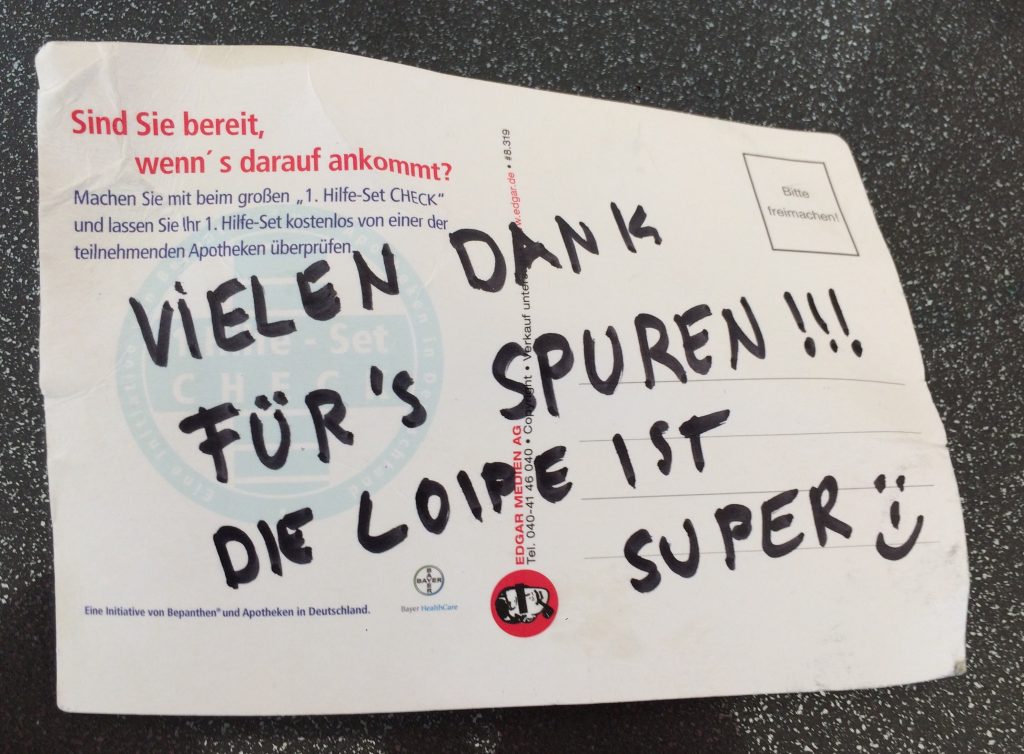 Sind Sie bereit,
wenn´s darauf ankommt?
Machen Sie mit beim großen „1. Hilfe-Set CHECK“
und lassen Sie Ihr 1. Hilfe-Set kostenlos von einer der
teilnehmenden Apotheken überprüfen.
Bitte
freimachen!
VIELEN DANK
FÜR'S SPUREN!!!
DIE LOIPE IST
SUPER
- Set
CHECK
Eine Initiative
EDGAR MEDIEN AG
Tel. 040-41 46 040 • Copyright • Verkauf
.edgar.de • #8.319
Eine Initiative von Bepanthen® und Apotheken in Deutschland.
BAYER
Bayer HealthCare